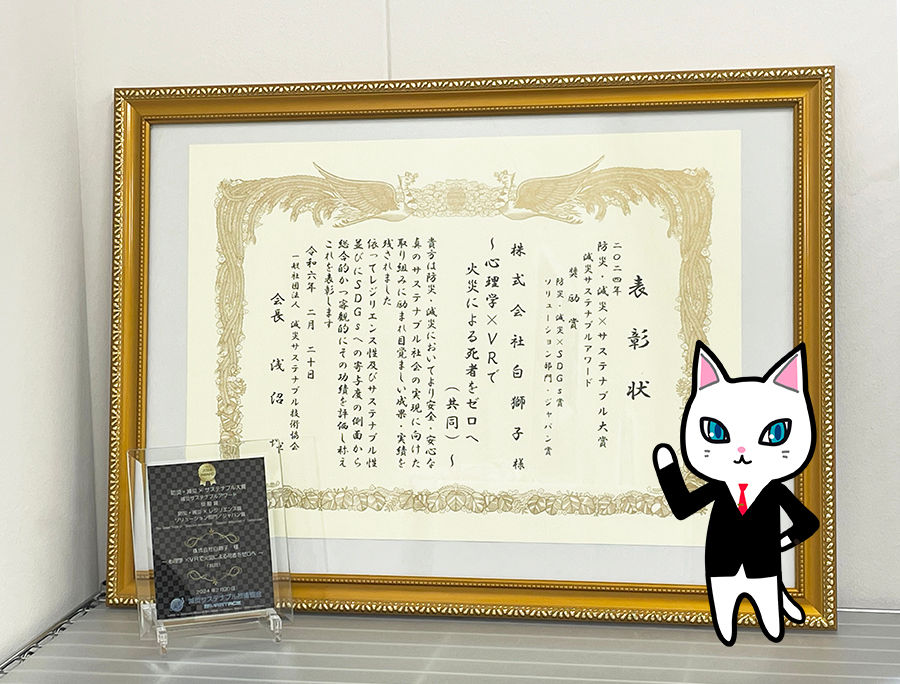 表彰状
二〇二四年
防災・減災×サステナブル大賞
減災サステナブルアワード
奨励賞
防災・減災×SDGs賞
ソリューション部門・ジャパン賞
株式会社白獅子 様
〜心理学×VRで
火災による死者をゼロへ
(共同)〜
貴方は防災・減災においてより安全・安心な
真のサステナブル社会の実現に向けた
取り組みに励まれ目覚ましい成果・実績を
残されました
依ってレジリエンス性及びサステナブル性
並びにSDGsへの寄与度の側面から
総合的かつ客観的にその功績を評価し称え
これを表彰します
令和六年 二月 二十日
一般社団法人 減災サステナブル技術協会
会長 浅沼
防災・減災×サステナブル大賞
減災サステナブルアワード
奨励賞
防災・減災×レジリエンス賞
ソリューション部門/ジャパン賞
株式会社白獅子 様
〜心理学×VRで火災による死者をゼロへ〜
(共同)
2024年2月20日
減災サステナブル技術協会